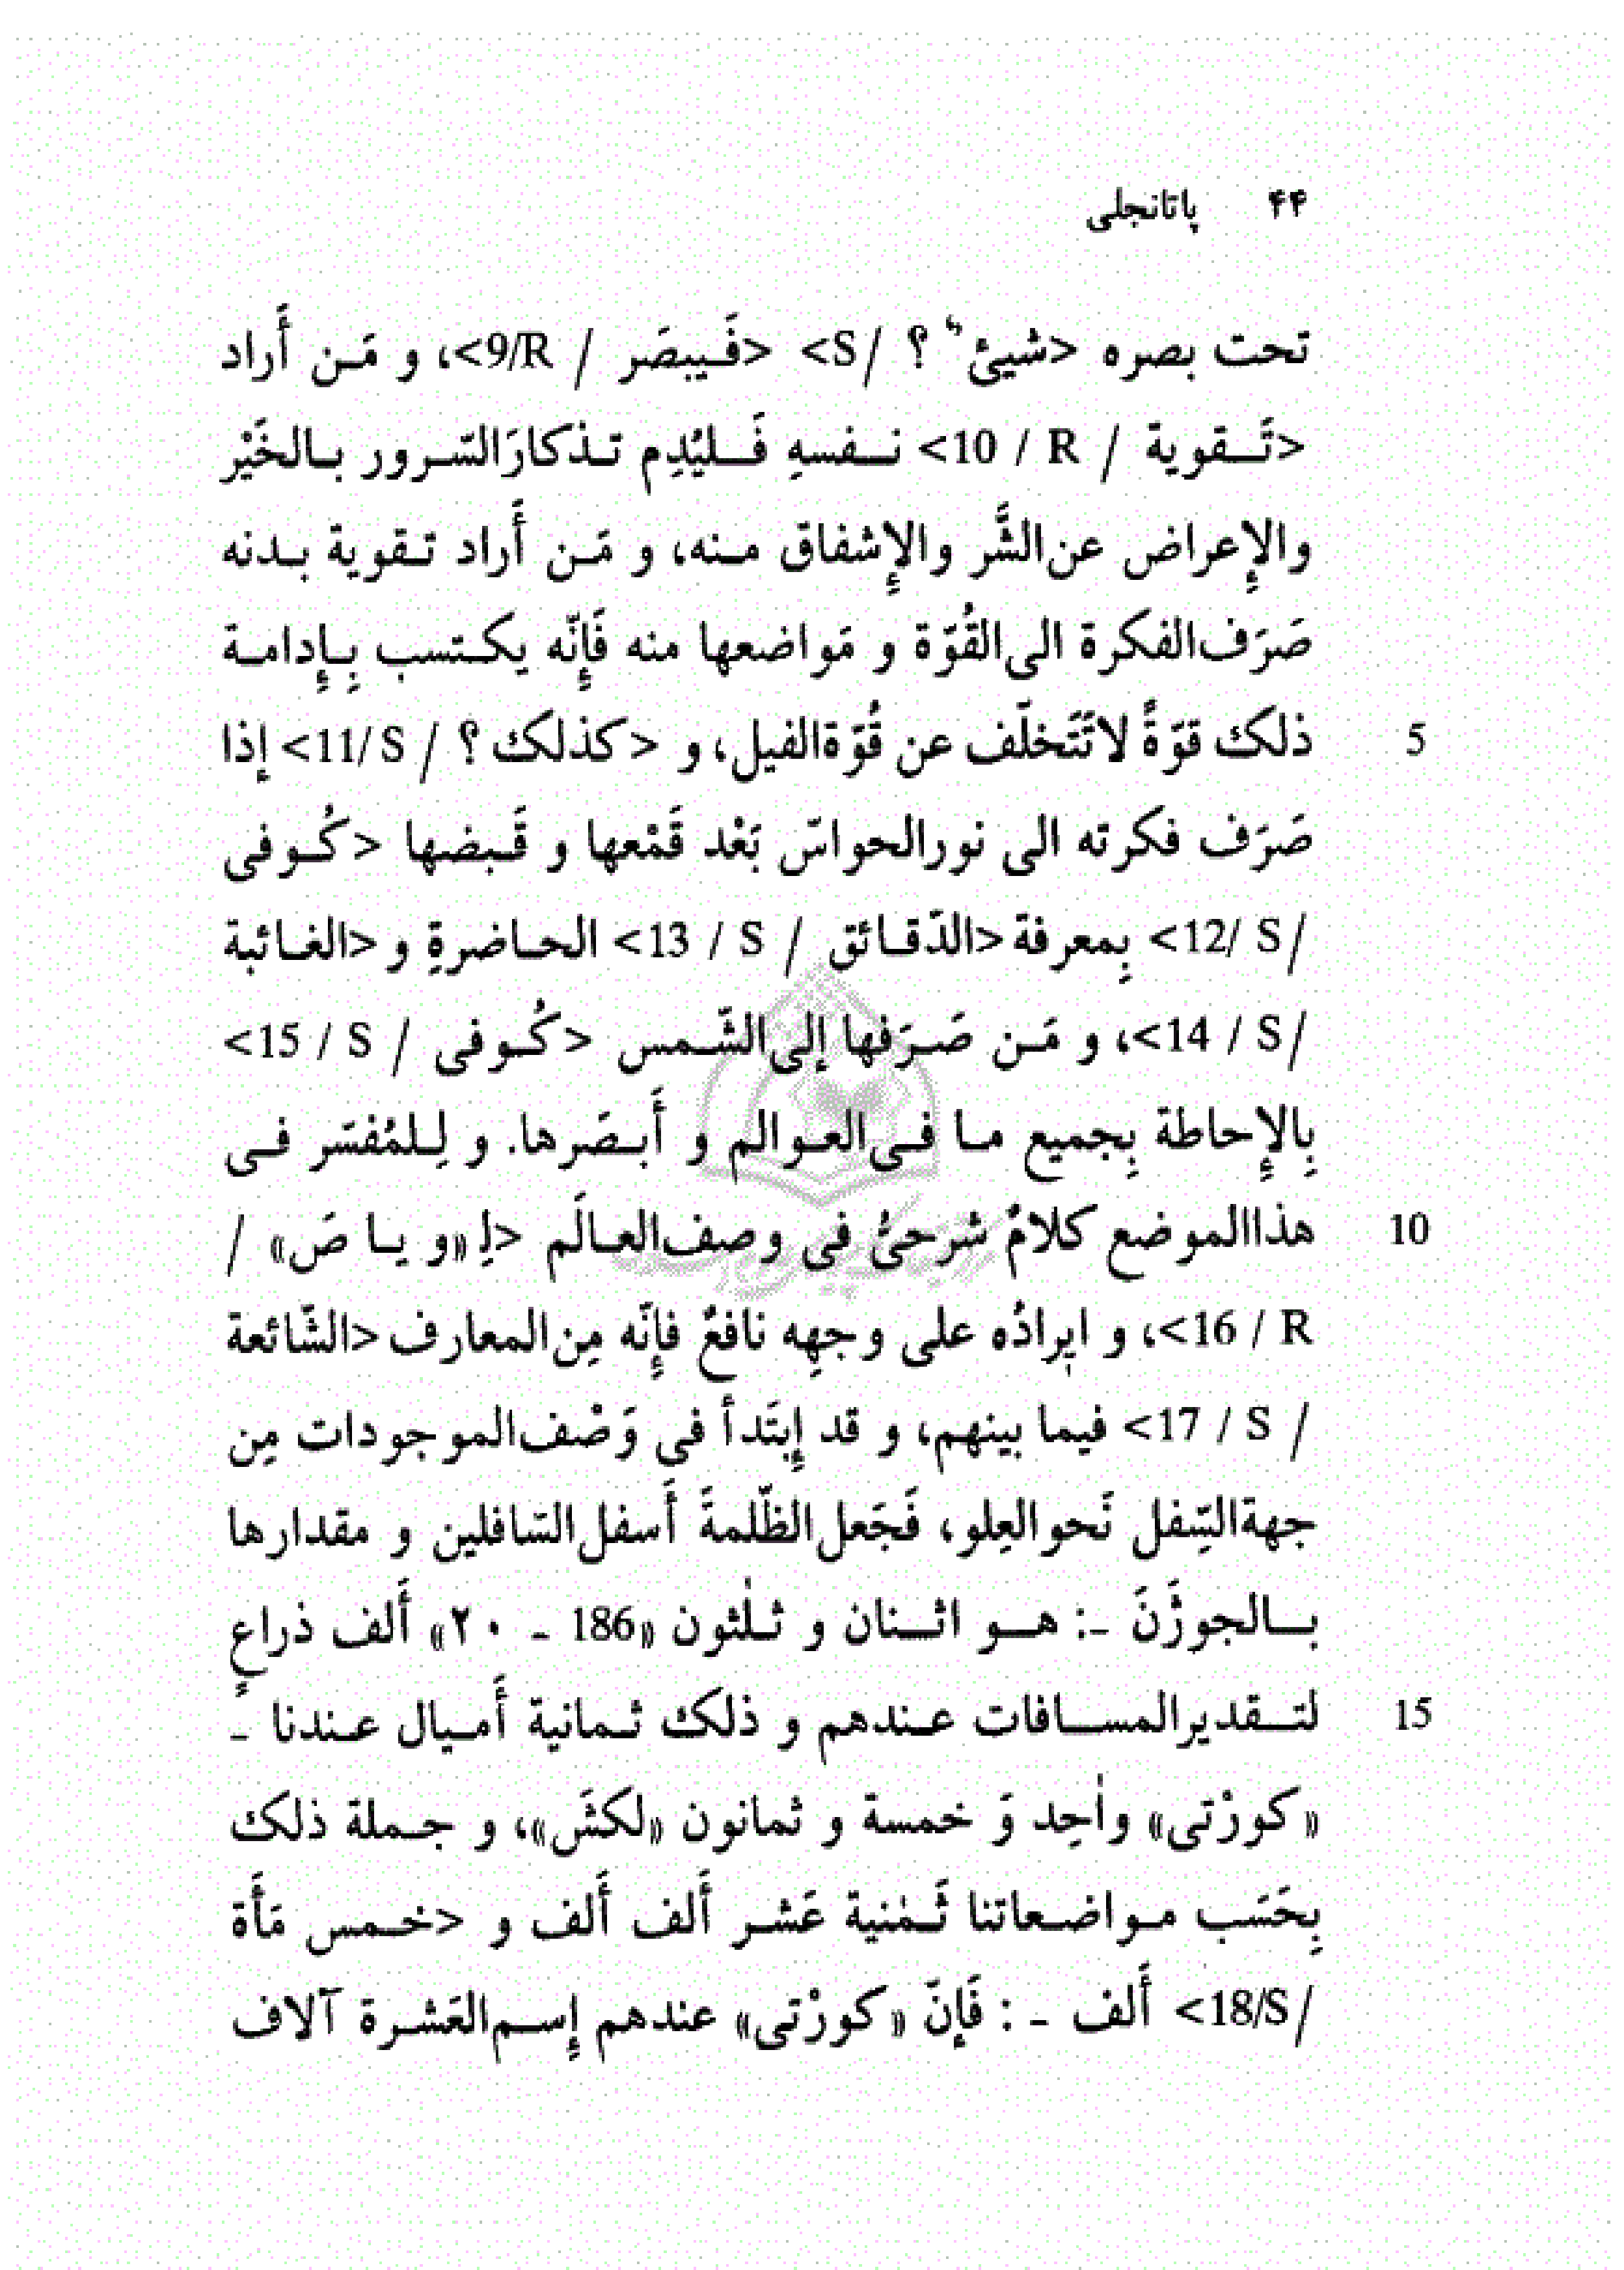 ۴۴ پاتانجلی
تحت بصره <شیئٌ ؟ /S> <فَیبصَر / 9/R>، و مَن أَراد
<تَقویة / R / 10> نفسهِ فَلیُدِم تذکارَالسّرور بالخَیْر
والإِعراض عن‌الشَّر والإِشفاق منه، و مَن أَراد تقویة بدنه
صَرَف‌الفکرة الی‌القُوّة و مَواضعها منه فَإِنّه یکتسب بِإِدامة
5 ذلک قوّةً لاتَتَخلّف عن قُوّةالفیل، و <کذلک ؟ / 11/S> إذا
صَرَف فکرته الی نورالحواسّ بَعْد قَمْعها و قَبضها <کُوفی
/ 12/ S> بِمعرفة <الدّقائق / 13 / S> الحاضرةِ و <الغائبة
/ 14 / S>، و مَن صَرَفها إلی‌الشّمس <کُوفی / 15 / S>
بِالإِحاطة بِجمیع ما فی‌العوالم و أَبصَرها. و لِلمُفسّر فی
10 هذاالموضع کلامٌ شرحیٌّ فی وصف‌العالَم <لِـ «و یا صَ» /
16 / R>، و ایرادُه علی وجهِه نافعٌ فإِنّه مِن‌المعارف <الشّائعة
/ 17 / S> فیما بینهم، و قد إِبتَدأ فی وَصْف‌الموجودات مِن
جهةالسِّفل نَحوالعِلو، فَجَعل‌الظّلمةَ أَسفل‌السّافلین و مقدارها
بالجوژَنَ -: هو اثنان و ثلٰثون «186 - ۲۰» أَلف ذراعٍ
15 لتقدیرالمسافات عندهم و ذلک ثمانیة أَمیال عندنا -
«کورْتی» واٰحِد وَ خمسة و ثمانون «لکشَ»، و جملة ذلک
بِحَسَب مواضعاتنا ثَمٰنیة عَشر أَلف أَلف و <خمس مَأَة
/ 18/S> أَلف - : فَإنّ «کورْتی» عندهم إِسم‌العَشرة آلاف